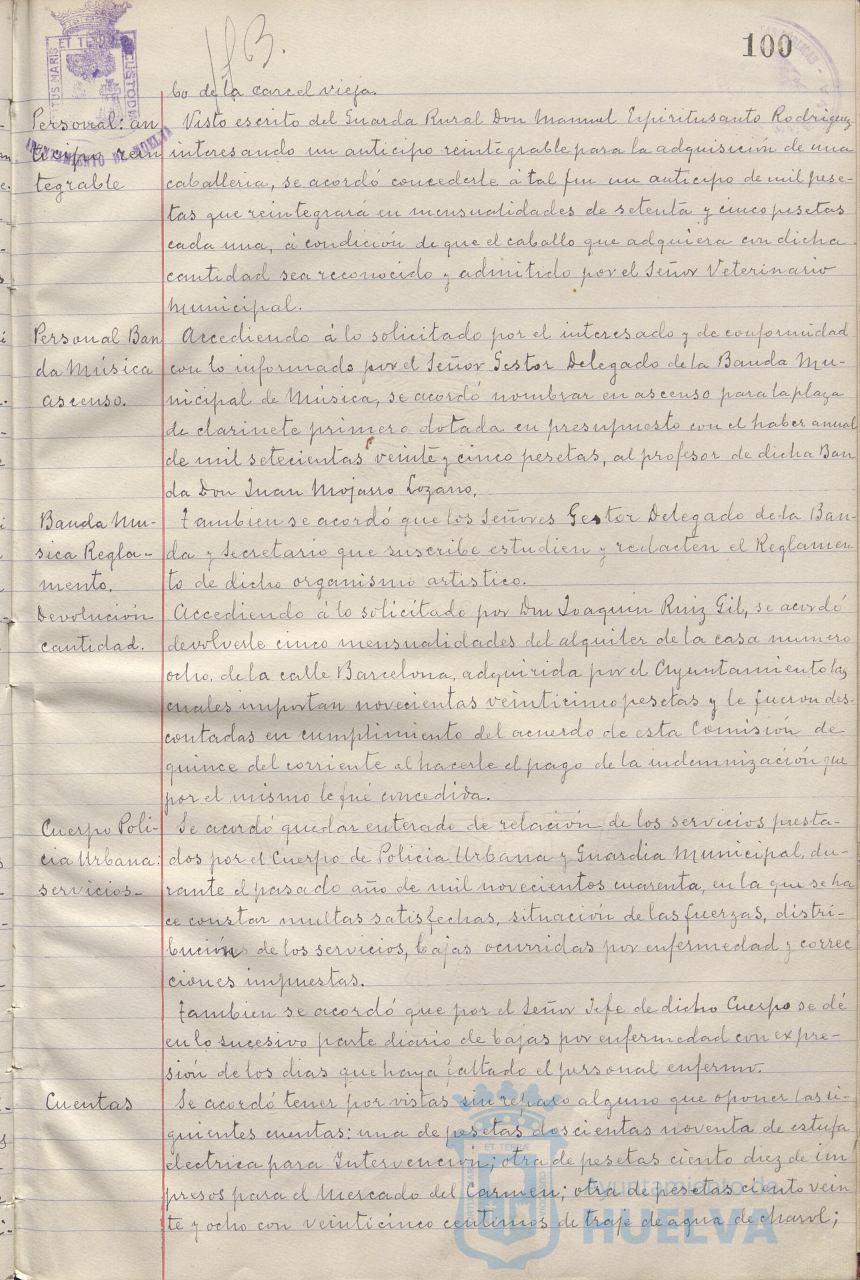 113.
100
bo de la carcel vieja.
Personal: an
ticipo rein
tegrable
Visto escrito del Guarda Rural Don Manuel Espiritusanto Rodriguez
interesando un anticipo reintegrable para la adquisición de una
caballeria, se acordó concederle á tal fin un anticipo de mil pese-
tas que reintegrará en mensualidades de setenta y cinco pesetas
cada una, á condición de que el caballo que adquiera con dicha
cantidad sea reconocido y admitido por el Señor Veterinario
Municipal.
Personal Ban
da Música
ascenso.
Accediendo á lo solicitado por el interesado y de conformidad
con lo informado por el Señor Gestor Delegado de la Banda Mu-
nicipal de Música, se acordó nombrar en ascenso para la plaza
de clarinete primero dotada en presupuesto con el haber anual
de mil setecientas veinte y cinco pesetas, al profesor de dicha Ban
da Don Juan Mojarro Lozano.
Banda Mu-
sica Regla-
mento.
Tambien se acordó que los Señores Gestor Delegado de la Ban-
da y Secretario que suscribe estudien y redacten el Reglamen-
to de dicho organismo artistico.
Devolución
cantidad.
Accediendo á lo solicitado por Don Joaquin Ruiz Gil, se acordó
devolverle cinco mensualidades del alquiler de la casa numero
ocho, de la calle Barcelona, adquirida por el Ayuntamiento las
cuales importan novecientas veinticinco pesetas y le fueron des-
contadas en cumplimiento del acuerdo de esta Comisión de
quince del corriente al hacerle el pago de la indemnización que
por el mismo le fué concedida.
Cuerpo Poli-
cia Urbana:
servicios-
Se acordó quedar enterado de relación de los servicios presta-
dos por el Cuerpo de Policia Urbana y Guardia Municipal, du-
rante el pasado año de mil novecientos cuarenta, en la que se ha
ce constar multas satisfechas, situación de las fuerzas, distri-
bución de los servicios, bajas ocurridas por enfermedad y correc
ciones impuestas.
Tambien se acordó que por el Señor Jefe de dicho Cuerpo se dé
en lo sucesivo parte diario de bajas por enfermedad con expre-
sión de los dias que haya faltado el personal enfermo.
Cuentas
Se acordó tener por vistas sin reparo alguno que oponer las si-
guientes cuentas: una de pesetas doscientas noventa de estufa
electrica para Intervención; otra de pesetas ciento diez de im
presos para el Mercado del Carmen; otra de pesetas ciento vein
te y ocho con veinticinco centimos de traje de agua de charol;
Ayuntamiento de
HUELVA